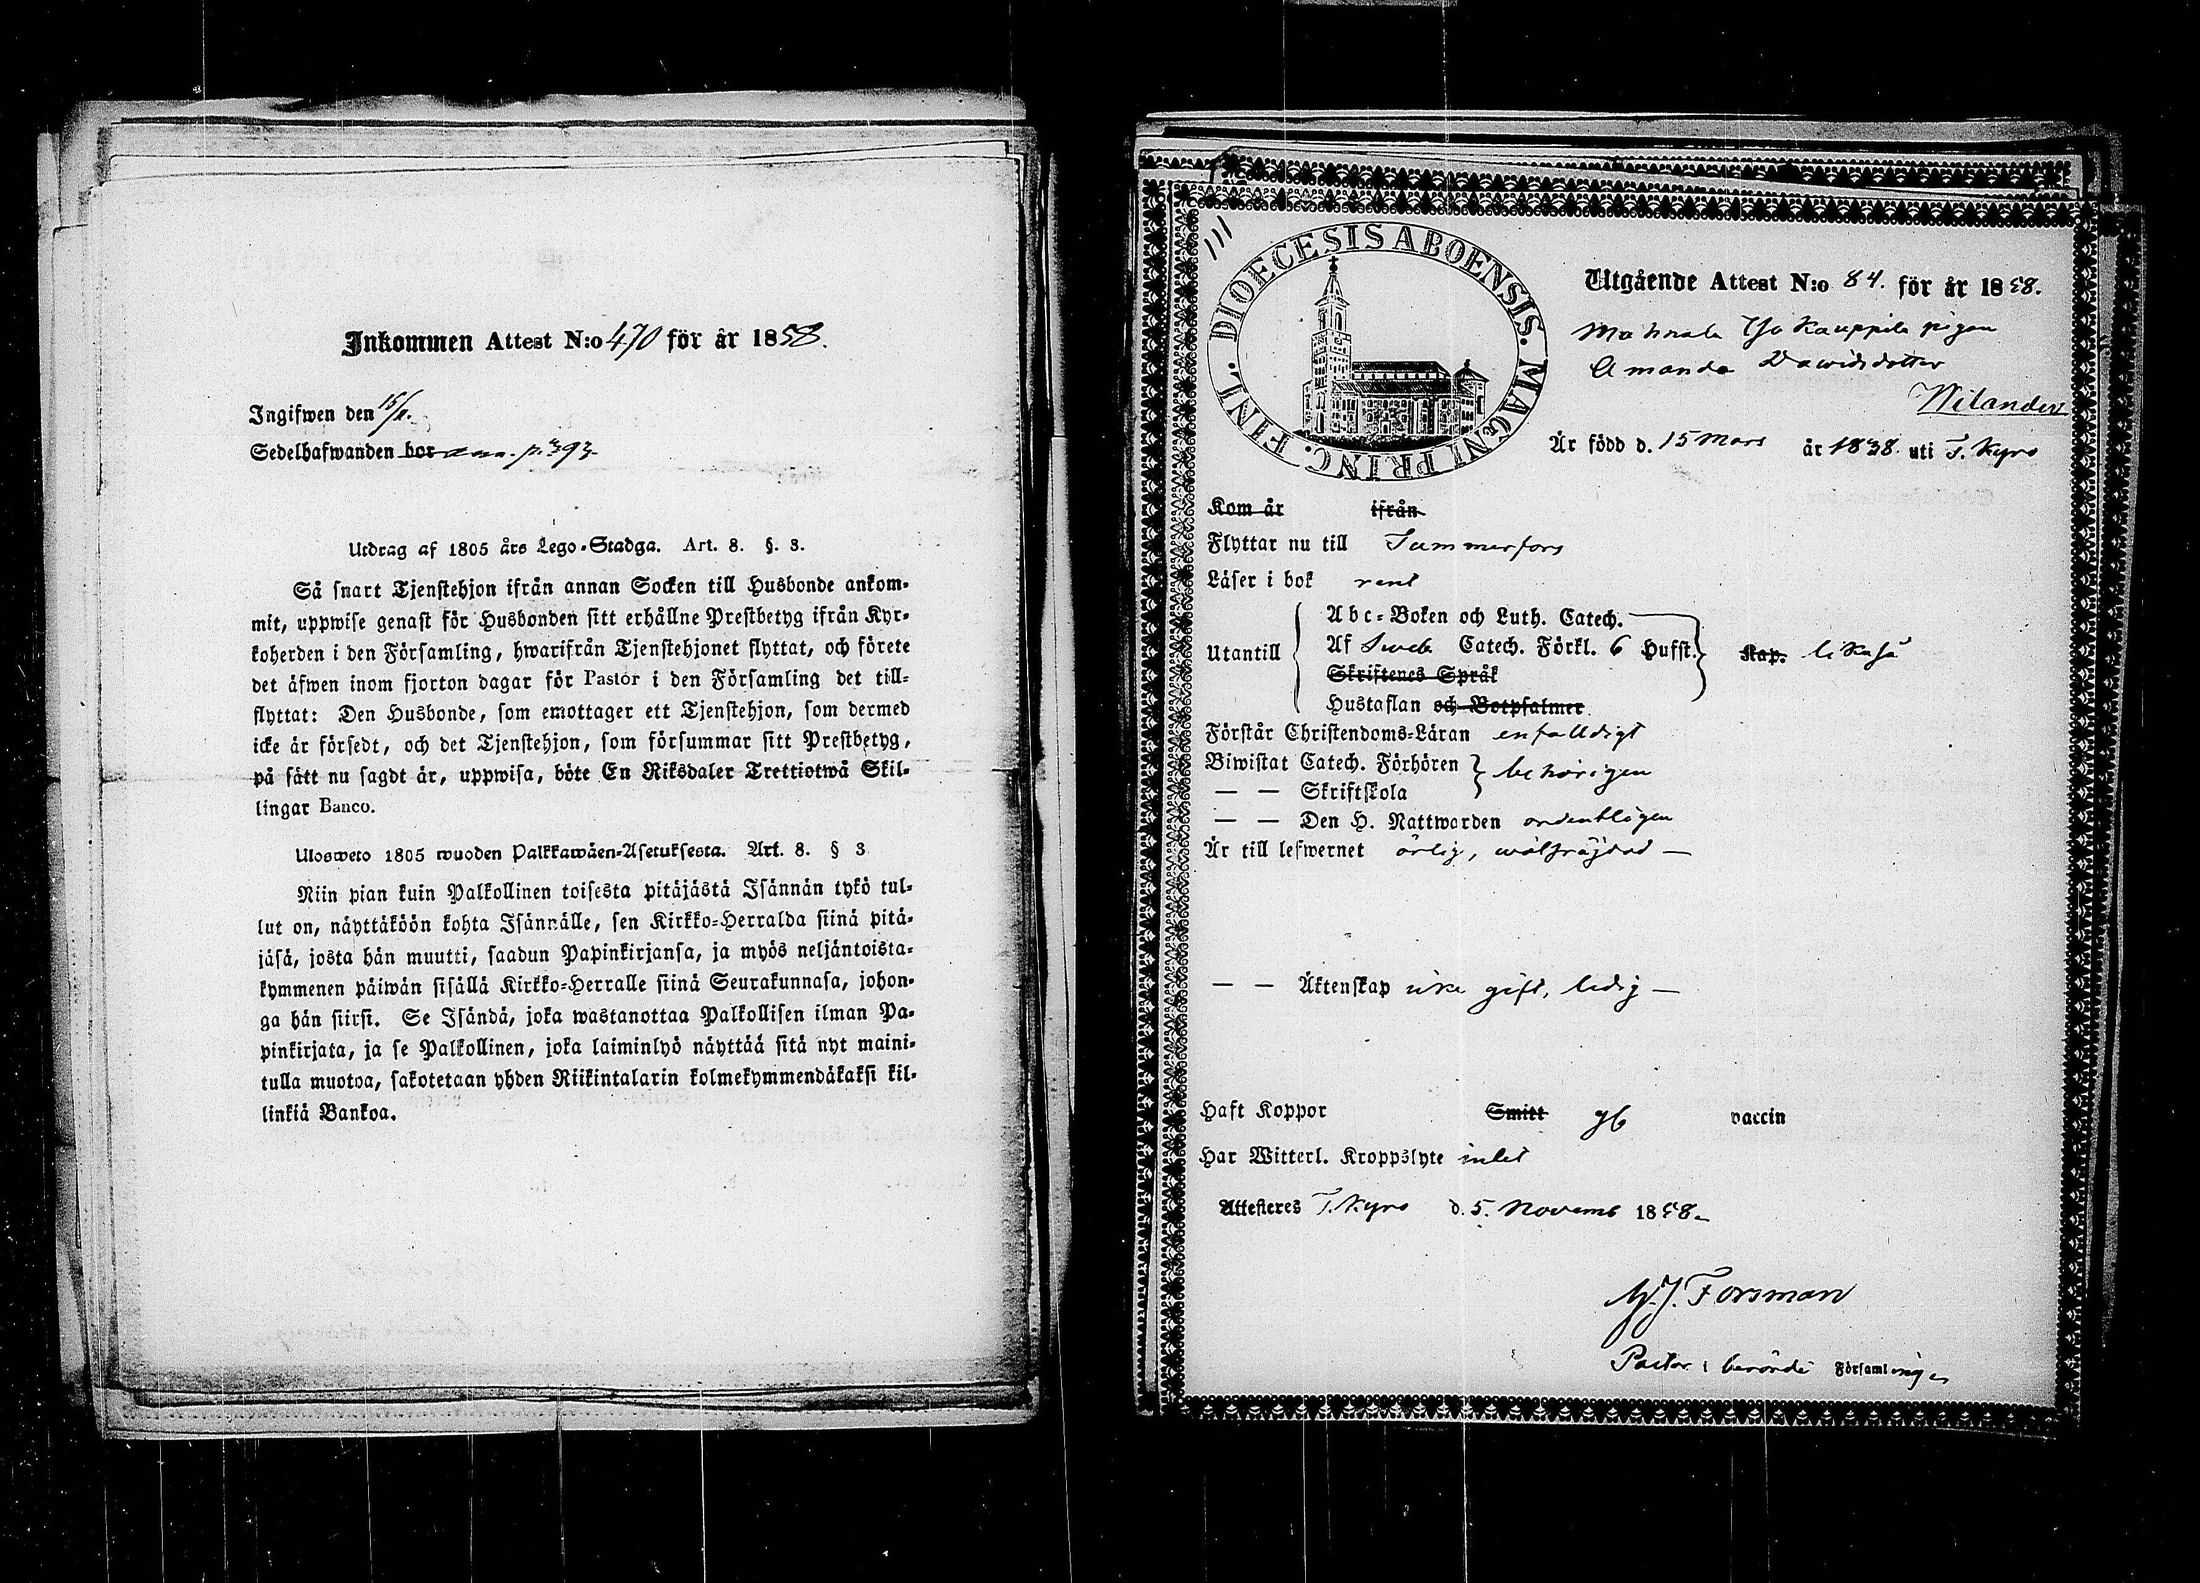 Inkommen Attest N:o 470 för år 1858.
Ingifwen den 15/11.
Sedelhafwanden bor p. 393.
Utdrag af 1805 års Lego-Stadga. Art. 8. §. 3.
Så snart Tjenstehjon ifrån annan Socken till Husbonde ankom-
mit, uppwise genast för Husbonden sitt erhållne Prestbetyg ifrån Kyr-
koherden i den Församling, hwarifrån Tjenstehjonet flyttat, och förete
det äfwen inom fjorton dagar för Pastor i den Församling det till-
flyttat: Den Husbonde, som emottager ett Tjenstehjon, som dermed
icke är försedt, och det Tjenstehjon, som försummar sitt Prestbetyg,
på sätt nu sagdt är, uppwisa, böte En Riksdaler Trettiotwå Skil-
lingar Banco.
Ulosweto 1805 wuoden Palkkawäen-Asetuksesta. Art. 8. § 3
Niin pian kuin Palkollinen toisesta pitäjästä Isännän tykö tul-
lut on, näyttäköön kohta Isännälle, sen Kirkko-Herralda siinä pitä-
jäsä, josta hän muutti, saadun Papinkirjansa, ja myös neljäntoista-
kymmenen päiwän sisällä Kirkko-Herralle siinä Seurakunnasa, johon-
ga hän siirsi. Se Isändä, joka wastanottaa Palkollisen ilman Pa-
pinkirjata, ja se Palkollinen, joka laiminlyö näyttää sitä nyt maini-
tulla muotoa, sakotetaan yhden Riikintalarin kolmekymmendäkaksi kil-
linkiä Bankoa.
111
DIOECESIS ABOENSIS. MAGNI PRINC. FINL.
Utgående Attest N:o 84. för år 1858.
Mahnala Yso Kauppila pigan
Amanda Davidsdotter
Wilander
Är född d. 15 Mars år 1838. uti T. Kyro
Kom år ifrån
Flyttar nu till Tammerfors
Läser i bok rent
Utantill
Abc-Boken och Luth. Catech.
Af Sveb. Catech. Förkl. 6 Hufst. Kap. likaså
Skriftenes Språk
Hustaflan och Botpsalmer
Förstår Christendoms-Läran enfalldigt
Biwistat Catech. Förhören
— — Skriftskola
behörigen
— — Den H. Nattwarden ordentligen
Är till lefwernet ärlig, wälfräjdad —
— — Äktenskap icke gift, ledig —
Haft Koppor Smitt gb vaccin
Har Witterl. Kroppslyte intet
Attesteres T. Kyro d. 5. Novemb 1858.
Forsman
Pastor i berörde Församlingen